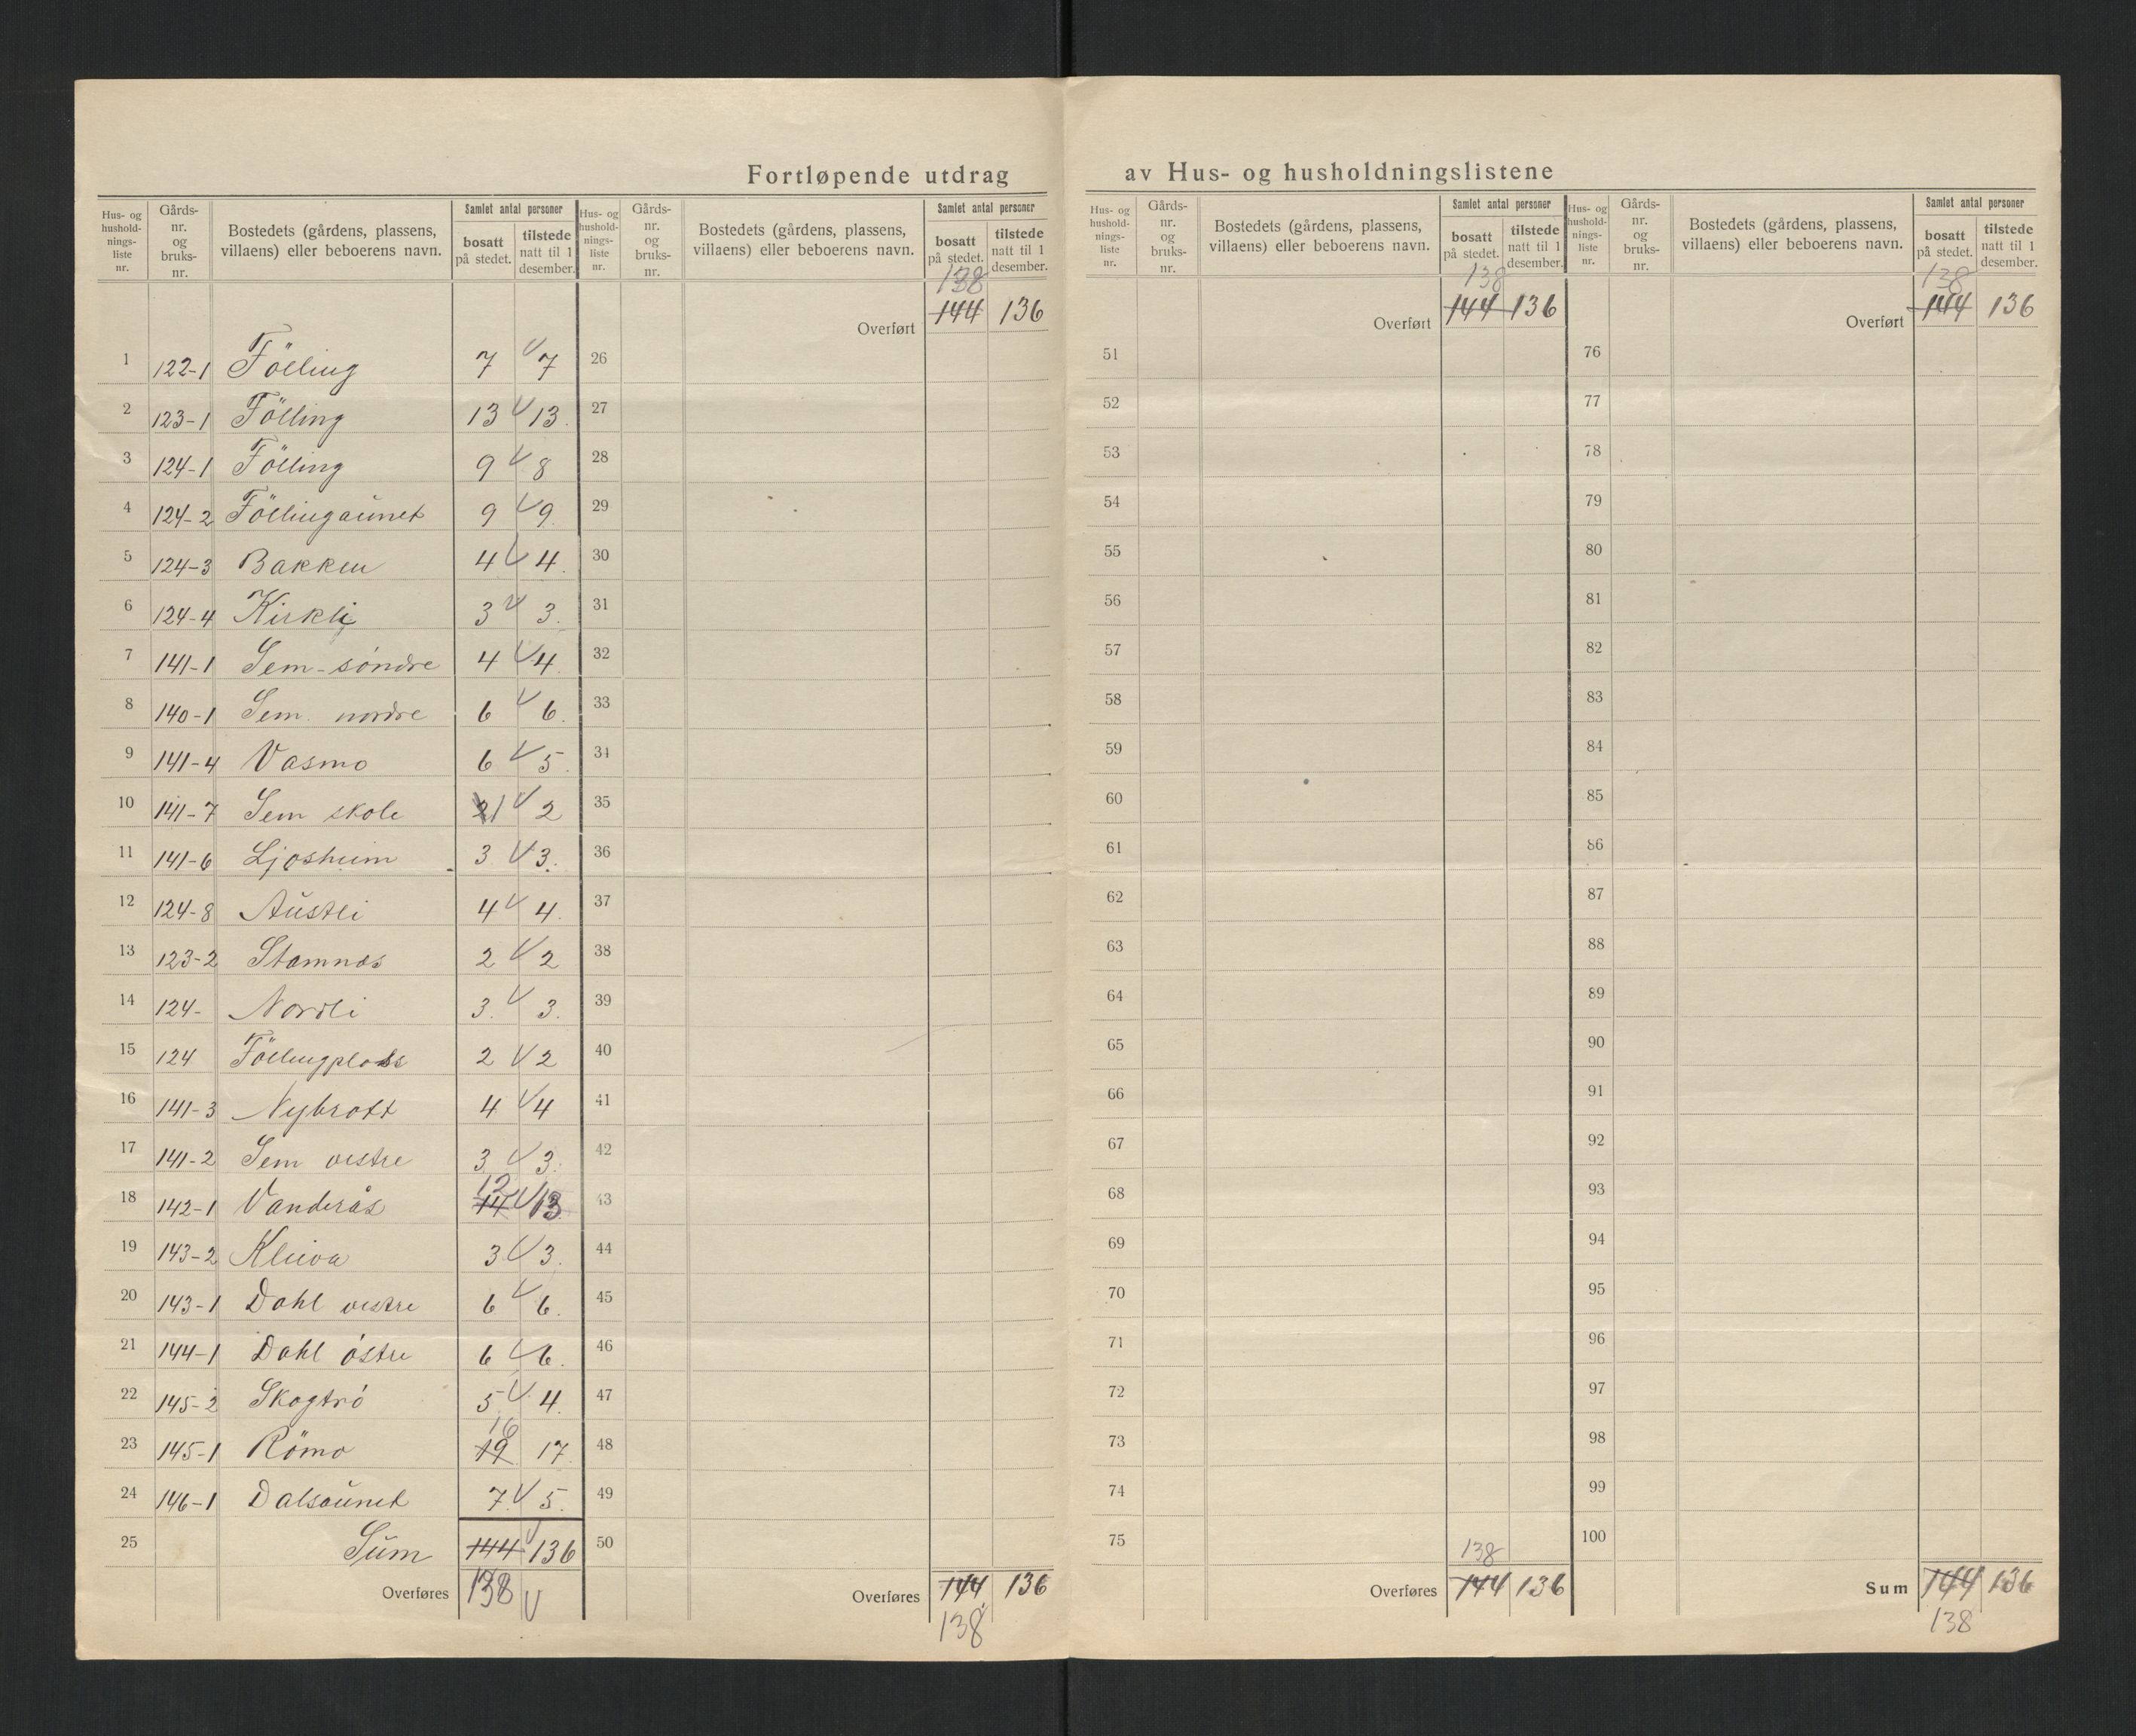 Fortløpende utdrag av Hus- og husholdningslistene
Hus- og husholdnings- liste nr. | Gårds- nr. og bruks- nr. | Bostedets (gårdens, plassens, villaens) eller beboerens navn. | Samlet antal personer | bosatt på stedet. | tilstede natt til 1 desember.
1 122-1 Fölling 7 V 7
2 123-1 Fölling 13 V 13.
3 124-1 Fölling 9 V 8
4 124-2 Föllingaunet 9 V 9.
5 124-3 Bakken 4 V 4.
6 124-4 Kirkli 3 V 3.
7 141-1 Sem-söndre 4 V 4.
8 140-1 Sem nordre 6 V 6.
9 141-4 Vasmo 6 V 5.
10 141-7 Sem skole 2 1 V 2
11 141-6 Ljosheim 3 V 3.
12 124-8 Austli 4 V 4.
13 123-2 Stamnes 2 V 2
14 124- Nordli 3. V 3.
15 124 Föllingplass 2 V 2
16 141-3 Nybrott 4 V 4
17 141-2 Sem vestre 3 V 3.
18 142-1 Vanderås 14 12 V 13
19 143-2 Kleiva 3 V 3.
20 143-1 Dahl vestre 6 V 6.
21 144-1 Dahl östre 6 V 6.
22 145-2 Skogtrö 5 V 4.
23 145-1 Römo 19 16 17
24 146-1 Dalsaunet 7. V 5.
25 Sum 144 V 136
Overføres 138 V
Hus- og husholdnings- liste nr. | Gårds- nr. og bruks- nr. | Bostedets (gårdens, plassens, villaens) eller beboerens navn. | Samlet antal personer | bosatt på stedet. | tilstede natt til 1 desember.
138
Overført 144 136
26
27
28
29
30
31
32
33
34
35
36
37
38
39
40
41
42
43
44
45
46
47
48
49
50
Overføres 144 136
138
Hus- og husholdnings- liste nr. | Gårds- nr. og bruks- nr. | Bostedets (gårdens, plassens, villaens) eller beboerens navn. | Samlet antal personer | bosatt på stedet. | tilstede natt til 1 desember.
138
Overført 144 136
51
52
53
54
55
56
57
58
59
60
61
62
63
64
65
66
67
68
69
70
71
72
73
74
75
138
Overføres 144 136
Hus- og husholdnings- liste nr. | Gårds- nr. og bruks- nr. | Bostedets (gårdens, plassens, villaens) eller beboerens navn. | Samlet antal personer | bosatt på stedet. | tilstede natt til 1 desember.
138
Overført 144 136
76
77
78
79
80
81
82
83
84
85
86
87
88
89
90
91
92
93
94
95
96
97
98
99
100
Sum 144 136
138